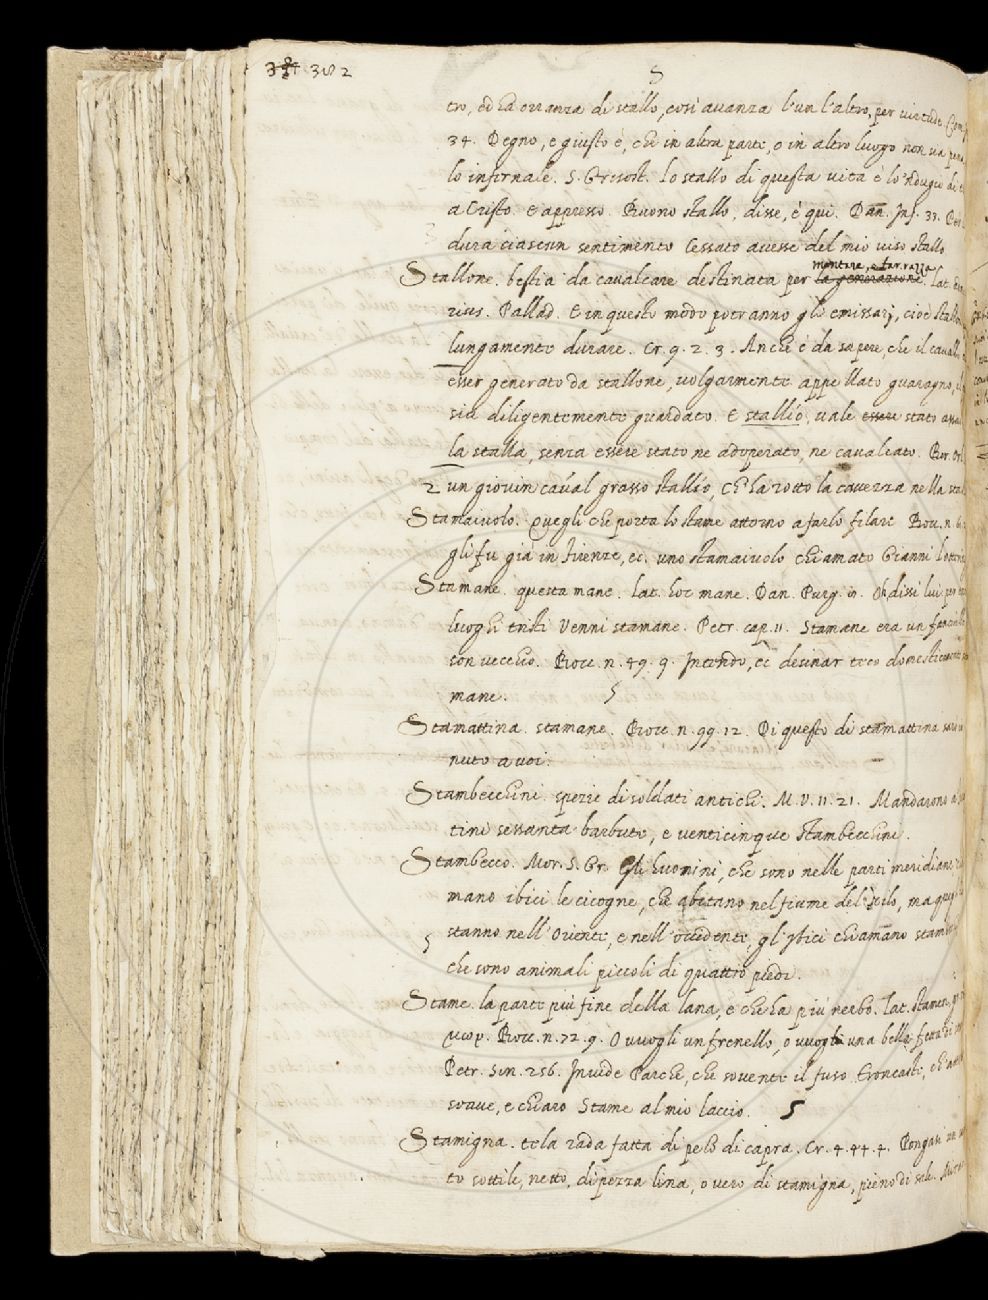 382
S
tro, ed ha orranza di stallo, così auanza l'un l'altro, per uirtude
34. Degno, e giusto è, che in altra parte, o in altro luogo non ua
lo infernale. S. Grisost. Lo stallo di questa uita è lo'ndugio di
a Cristo. E appresso. Buono stallo, disse, è qui. Dan. Inf. 33.
dura ciascun sentimento Cessato auesse del mio uiso stallo
montare, e far razza
Stallone. bestia da caualcare destinata per la generazione. Lat.
rius. Pallad. E in questo modo potranno gli emissarj, cioè
lungamente durare. Cr. 9. 2. 3. Anche è da sapere, che il cauallo
esser generato da stallone, uolgarmente appellato guaragno,
sia diligentemente guardato. E stallío, uale essere stato
la stalla, senza essere stato ne adoperato, ne caualcato. Ber. Orl.
2 un giouin caual grasso stallío, Ch'ha rotto la cauezza nella
Stamaiuolo. Quegli che porta lo stame attorno a farlo filare Bocc. n.
gli fu già in Firenze, ec. uno stamaiuolo chiamato Gianni
Stamane. questa mane. Lat. hoc mane. Dan. Purg. Oh dissi lui, per
luoghi tristi Venni stamane. Petr. cap. 11. Stamane era un fanciullo
son uecchio. Bocc. n. 49. 9. Intendo, ec desinar teco domesticamente
mane. S
Stamattina. stamane. Bocc. n. 99. 12. Di questo dì stamattina
nuto a uoi.
Stambecchini. spezie di soldati antichi. M. V. 11. 21. Mandarono
tini sessanta barbute, e uenticinque stambecchini.
Stambecco. Mor. S. Gr. Gli huomini, che sono nelle parti meridiane
mano ibici le cicogne, che abitano nel fiume del Nilo, ma
stanno nell'Oriente, e nell'occidente, gl'ybici chiamano
che sono animali piccoli di quattro piedi.
Stame. la parte più fine della lana, e che ha più nerbo. Lat. stamen,
Bocc. n. 72. 9. O uuogli un frenello, o uuogli una bella fetta di
Petr. Son. 256. Inuide Parche, che souente il fuso Troncaste,
soaue, e chiaro Stame al mio laccio. S
Stamigna. tela rada fatta di pelo di capra. Cr. 4. 44. 4. Pongasi
to sottile, netto, di pezza lina, o uero di stamigna, pieno di sale.